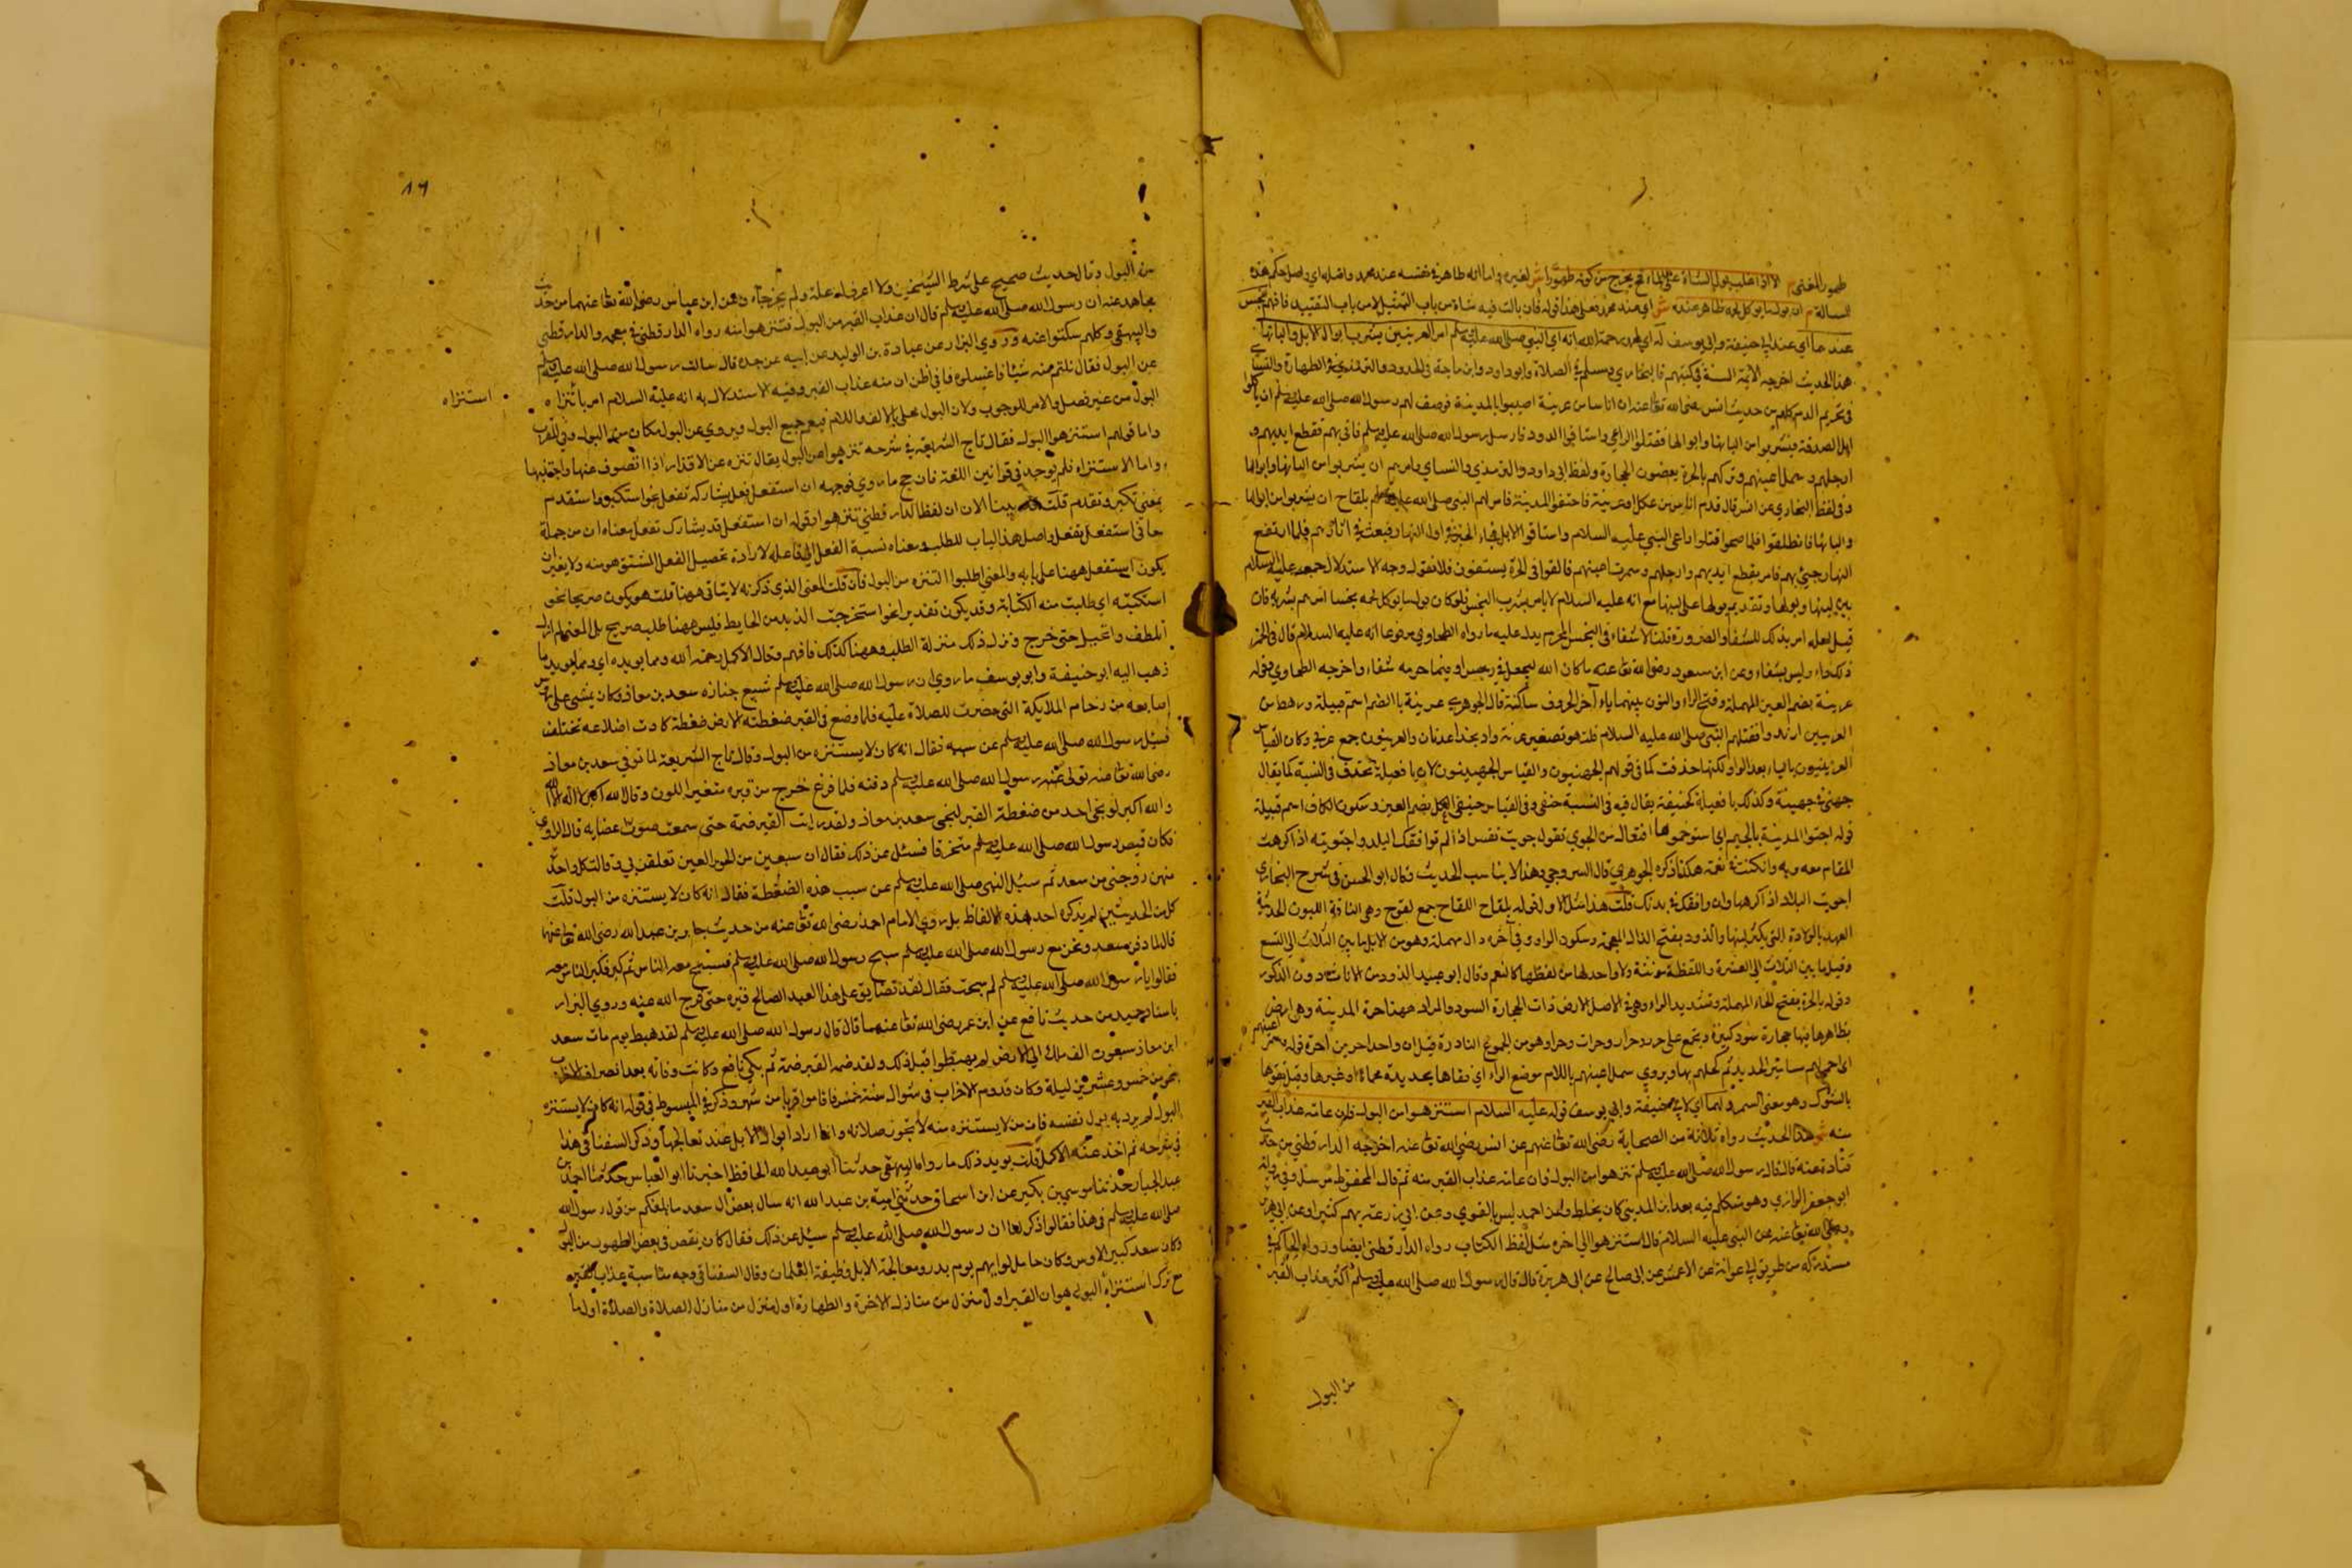 طهور المعنى م الا اذا غلب بول الشاة على الماء فح يخرج من كونه طهورا ش لغيره واما انه طاهر في نفسه عند محمد واصله اي واصل حكم هذه
المسالة م ان بول ما يوكل لحمه طاهر عنده ش اي عند محمد فعلى هذا قوله فان بالت فيه شاة من باب التمثيل لا من باب التقييد فافهم نجس
عندهما اي عند ابي حنيفة وابي يوسف له اي لمحمد رحمة الله انه اي النبي صلى الله عليه وسلم امر العرنيين بشرب ابوال الابل والبانها
هذا الحديث اخرجه الائمة الستة في كتبهم فالبخاري ومسلم في الصلاة وابو داود وابن ماجة في الحدود والترمذي في الطهارة والنسائي
في تحريم الدم كلهم من حديث انس رضي الله تعا عنه ان اناسا من عرينة اصيبوا بالمدينة فرخص لهم رسول الله صلى الله عليه وسلم ان ياتوا
ابل الصدقة فيشربوا من البانها وابوالها فقتلوا الراعي واستاقوا الذود فارسل رسول الله صلى الله عليه وسلم فاتى بهم فقطع ايديهم و
ارجلهم وسمل اعينهم وتركهم بالحرة يعضون الحجارة ولفظ ابي داود والترمذي والنساي وامرهم ان يشربوا من البانها وابوالها
وفي لفظ البخاري عن انس قال قدم اناس من عكل او عرينة فاجتووا المدينة فامر لهم النبي صلى الله عليه وسلم بلقاح ان يشربوا من ابوالها
والبانها فانطلقوا فلما صحوا قتلوا راعي النبي عليه السلام واستاقوا الابل فجاء الخبر في اول النهار فبعث في اثارهم فلما ارتفع
النهار جيئ بهم فامر بقطع ايديهم وارجلهم وسمرت اعينهم فالقوا في الحرة يستسقون فلا
بين لبنها وبولها وتقديم بولها على لبنها مع انه عليه السلام لا يامر بشرب النجس فلو كان بول ما يوكل لحمه نجسا لما امرهم بشربه فان
قيل لعله امر بذلك للشفاء والضرورة قلنا لا شفاء في النجس المحرم يدل عليه ما رواه الطحاوي مرفوعا انه عليه السلام قال في الخمر
ذلك داء وليس بشفاء وعن ابن مسعود رضي الله تعا عنه ما كان الله ليجعل في رجس او فيما حرمه شفاء واخرجه الطحاوي قوله
عرينة بضم العين المهملة وفتح الراء والنون بينهما ياء آخر الحروف ساكنة قال الجوهري عرينة بالضم اسم قبيلة ورهط من
العرنيين ارتدوا فقتلهم النبي صلى الله عليه السلام قلت هو تصغير عرنة واد بحذاء عرفات والعرنيون جمع عرني وكان القياس
العرينيون بالياء بعد الراء ولكنها حذفت كما في قولهم الجهنيون والقياس الجهينيون لان ياء فعيلة تحذف في النسبة كما يقال
جهني في جهينة وكذلك ياء فعيلة كحنيفة يقال فيه في النسبة حنفي وفي القياس حنيفي العكل بضم العين وسكون الكاف اسم قبيلة
قوله اجتووا المدينة بالجيم اي استوخموها افتعال من الجوي تقول جويت نفس اذا لم توافقك البلد واجتويته اذا كرهت
المقام معه وبه وان كنت في نعمة هكذا ذكره الجوهري قال السروجي وهذا لا يناسب الحديث وقال ابو الحسن في شرح البخاري
اجويت البلاد اذا كرهها وان وافقك في بدنك قلت هذا مثل الاول قوله بلقاح اللقاح جمع لقوح وهي الناقة اللبون الحديثة
العهد بالولادة التي يكثر لبنها والذود بفتح الذال المعجمة وسكون الواو وفي آخره دال مهملة وهو من الابل ما بين الثلاث الى التسع
وقيل ما بين الثلاث الى العشرة واللفظة مونثة ولا واحد لها من لفظها كالنعم وقال ابو عبيد الذود من الاناث دون الذكور
وقوله بالحرة بفتح الحاء المهملة وتشديد الراء وهي في الاصل الارض ذات الحجارة السود والمراد ههنا حرة المدينة وهي ارض
بظاهرها بها حجارة سود كبيرة ويجمع على حر وحرار وحرات وحرا وهو من الجموع النادرة قيل ان واحد احرين احرة قوله سمر اعينهم
اي احمى لهم مسامير الحديد ثم كحلهم بها ويروي سمل اعينهم باللام موضع الراء اي فقاها بحديدة محماة او غيرها وقيل فقؤها
بالشوك وهو معنى السمر ولهما اي لابي حنيفة وابي يوسف قوله عليه السلام استنزهوا من البول فان عامة عذاب القبر
منه ش هذا الحديث رواه ثلاثة من الصحابة رضي الله تعا عنهم عن انس رضي الله تعا عنه اخرجه الدار قطني من حديث
قتادة عنه قال قال رسول الله صلى الله عليه وسلم تنزهوا من البول فان عامة عذاب القبر منه ثم قال المحفوظ مرسل وفي رواته
ابو جعفر الرازي وهو متكلم فيه بعد ابن المديني كان يخلط وعن احمد ليس بالقوي وعن ابي زرعة يهم كثيرا وعن ابي هريرة
رضي الله تعا عنه عن النبي عليه السلام قال استنزهوا الى اخره مثل لفظ الكتاب رواه الدار قطني ايضا ورواه الحاكم في
مستدركه من طريق ابي عوانة عن الاعمش عن ابي صالح عن ابي هريرة قال قال رسول الله صلى الله عليه وسلم اكثر عذاب القبر
من البول
١٦
من البول وقال حديث صحيح على شرط الشيخين ولا اعرف له علة ولم يخرجاه وعن ابن عباس رضي الله تعا عنهما من حديث
مجاهد عنه ان رسول الله صلى الله عليه وسلم قال ان عذاب القبر من البول فتنزهوا منه رواه الدار قطني في معجمه والدار قطني
والبيهقي وكلهم سكتوا عنه وروي البزار عن عبادة بن الوليد عن ابيه عن جده قال سالت رسول الله صلى الله عليه وسلم
عن البول فقال ثلثم منه شيئا فاغسلوه فاني اظن ان منه عذاب القبر وفيه الاستدلال به انه عليه السلام امر باستنزاه
استنزاه
البول من غير فصل والامر للوجوب ولان البول محلى بالالف واللام فيعم جميع البول ويروي عن البول مكان من البول وفي المغرب
واما قولهم استنزهوا البول فقال تاج الشريعة في شرحه تنزهوا من البول يقال تنزه عن الاقذار اذا تصوف عنها واجتنبها
واما الاستنزاه فلم يوجد في قوانين اللغة فان صح ما روي فوجهه ان استفعل بفعل يشاركه تفعل نحو استكبر واستقدم
بمعنى تكبر وتقدم قلت بينا الان ان لفظ الدار قطني تنزهوا وقوله ان استفعل قد يشارك تفعل معناه ان من جملة
معاني استفعل تفعل واصل هذا الباب للطلب ومعناه نسبة الفعل الى فاعله لارادة تحصيل الفعل المشتق هو منه ولا يغير ان
يكون استفعل ههنا على بابه والمعنى اطلبوا التنزه من البول فان قلت المعنى الذي ذكرته لا يتاتى ههنا قلت هو يكون صريحا نحو
استكتبته اي طلبت منه الكتابة وقد يكون تقديرا نحو استخرجت الوتد من الحايط فليس ههنا طلب صريح بل المعنى لم ازل
اتلطف واتحيل حتى خرج ونزل ذلك منزلة الطلب وههنا كذلك فافهم وقال الاكمل رحمة الله ومما يويده اي ومما يويد ما
ذهب اليه ابو حنيفة وابو يوسف ما روي ان رسول الله صلى الله عليه وسلم شيع جنازة سعد بن معاذ وكان يمشي على رؤس
اصابعه من زحام الملايكة التي حضرت للصلاة عليه فلما وضع في القبر ضغطته الارض ضغطة كادت اضلاعه تختلف
فسئل رسول الله صلى الله عليه وسلم عن سببه فقال انه كان لا يستنزه من البول وقال تاج الشريعة لما توفي سعد بن معاذ
رضي الله تعا عنه تولى رسول الله صلى الله عليه وسلم دفنه فلما فرغ خرج من قبره متغير اللون وقال الله اكبر لا اله الا الله
والله اكبر لو نجى احد من ضغطة القبر لنجى سعد بن معاذ ولقد رايت القبر ضمه حتى سمعت صوت عضايه قال الراوي
فكان قميص رسول الله صلى الله عليه وسلم متخرقا فسئل عن ذلك فقال ان سبعين من الحور العين تعلقن بي وقالت كل واحدة
منهن زوجني من سعد ثم سئل النبي صلى الله عليه وسلم عن سبب هذه الضغطة فقال انه كان لا يستنزه من البول قلت
كل من الحديثين لم يذكره احد بهذه الالفاظ بل روي الامام احمد رضي الله تعا عنه من حديث جابر بن عبد الله رضي الله تعا عنهما
قال لما دفن سعد ونحن مع رسول الله صلى الله عليه وسلم سبح رسول الله صلى الله عليه وسلم فسبح معه الناس ثم كبر فكبر الناس معه
فقالوا يا رسول الله صلى الله عليه وسلم لم سبحت فقال لقد تضايق على هذا العبد الصالح قبره حتى فرج الله عنه وروي البزار
باسناد جيد من حديث نافع عن ابن عمر رضي الله تعا عنهما قال قال رسول الله صلى الله عليه وسلم لقد هبط يوم مات سعد
ابن معاذ سبعون الف ملك الى الارض لم يهبطوا قبل ذلك ولقد ضمه القبر ضمة ثم بكى نافع وكانت وفاته بعد انصراف الاحزاب
بنحو من خمس وعشرين ليلة وكان قدوم الاحزاب في شوال سنة خمس فاقاموا قريبا من شهر وذكر في المبسوط في قوله انه كان لا يستنزه
البول لم يرد به بول نفسه فان من لا يستنزه منه لا تجوز صلاته وانما اراد ابوال الابل عند معالجتها وذكر السفناقي هذا
في شرحه ثم اخذ عنه الاكمل قلت يويد ذلك ما رواه البيهقي حدثنا ابو عبد الله الحافظ اخبرنا ابو العباس حدثنا احمد بن
عبد الجبار حدثنا يونس بن بكير عن ابن اسحاق حدثني امية بن عبد الله انه سال بعض ال سعد ما بلغكم من قول رسول الله
صلى الله عليه وسلم في هذا فقالوا ذكر لنا ان رسول الله صلى الله عليه وسلم سئل عن ذلك فقال كان يقصر في بعض الطهور من البول
وكان سعد كبير الاوس وكان حامل لوايهم يوم بدر ومعالجة الابل وظيفة الغلمان وقال السفناقي وجه مناسبة عذاب القبر
مع ترك استنزاه البول هو ان القبر اول منزل من منازل الاخرة والطهارة اول منزل من منازل الصلاة والصلاة اول ما